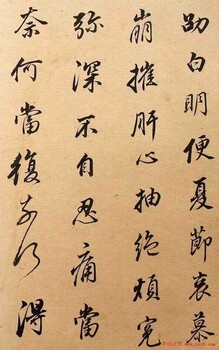 劭白明便夏節哀慕
崩摧肝心抽絕煩冤
弥深不自忍痛當
奈何當復奈何得